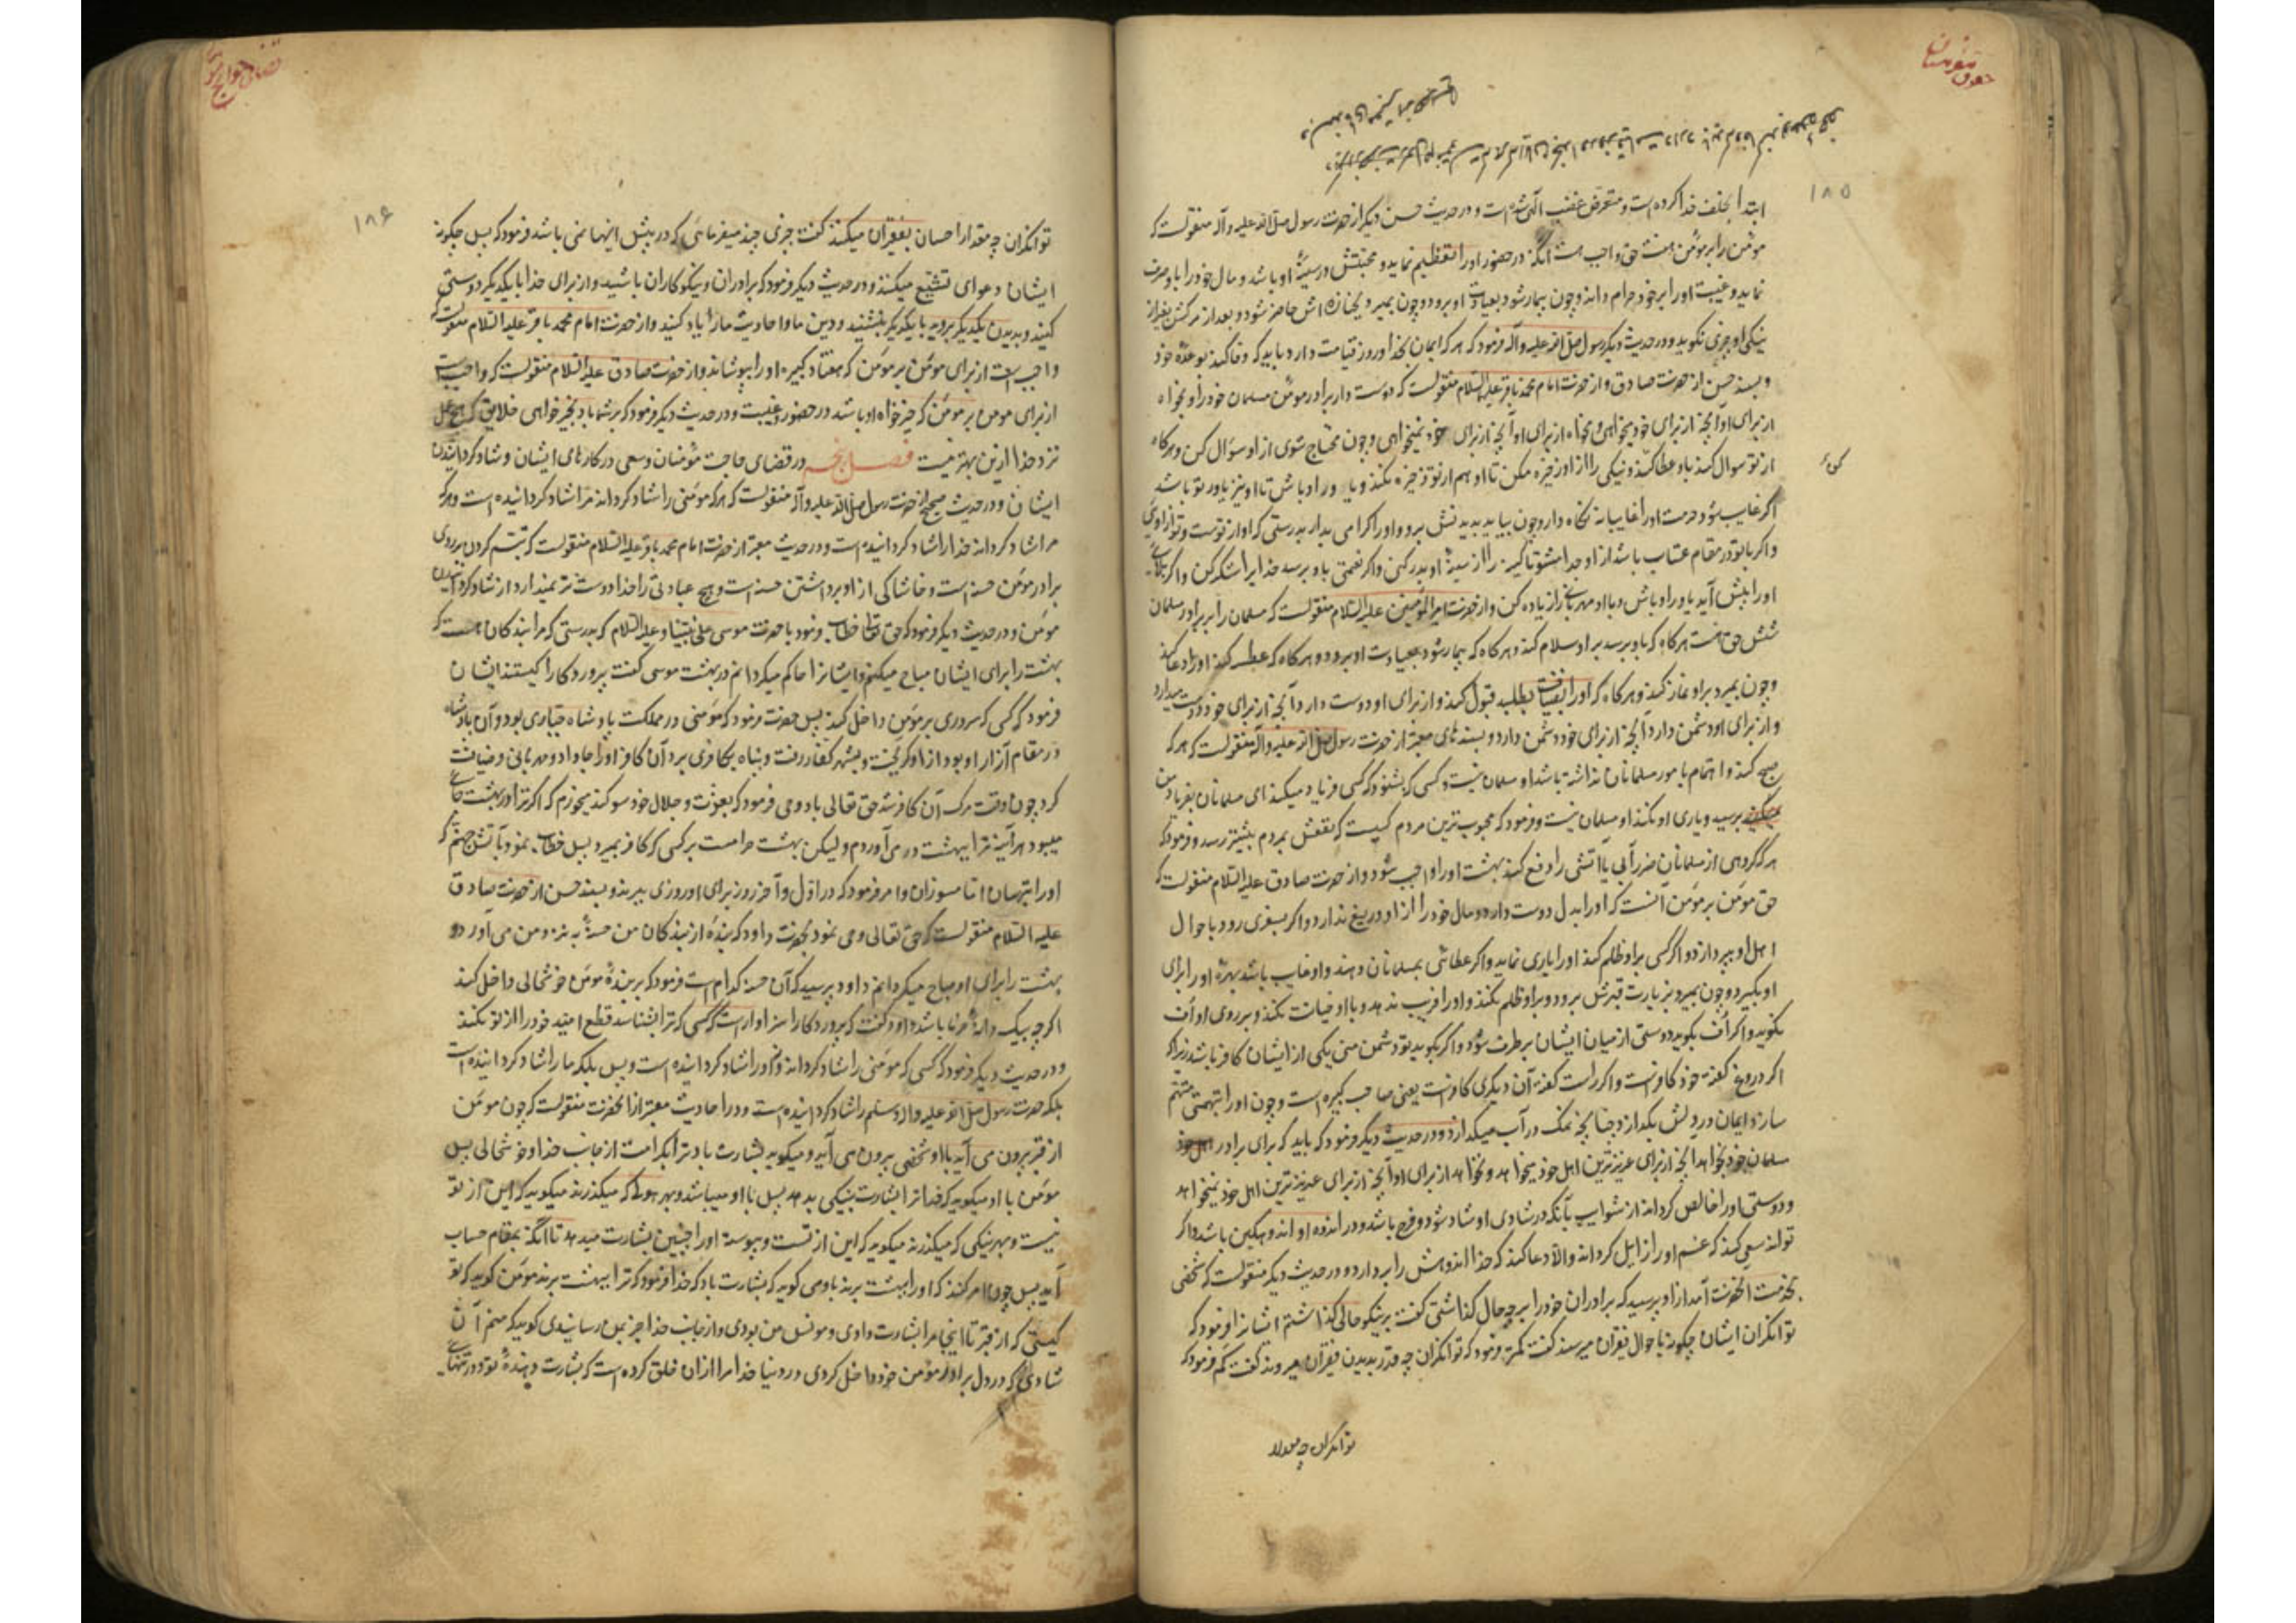 حقوق مؤمنان
۱۸۵
ابتدا بخلف خدا کرده است و متعرض غضب الهی شده است و در حدیث حسن دیگر از حضرت رسول صلی الله علیه وآله منقولست که
مؤمن را بر مؤمن هفت حق واجب است آنکه در حضور او را تعظیم نماید و محبتش در سینهٔ او باشد و مال خود را با و صرف
نماید و غیبت او را بر خود حرام داند و چون بیمار شود بعیادت او برود و چون بمیرد بجنازه اش حاضر شود و بعد از مرگش بغیر از
نیکی او چیزی نگوید و در حدیث دیگر رسول صلی الله علیه وآله فرمود که هر که ایمان بخدا و روز قیامت دارد باید که وفا کند بوعدهٔ خود
و بسند حسن از حضرت صادق و از حضرت امام محمد باقر علیه السلام منقولست که دوست دار برادر مؤمن مسلمان خود را و بخواه
از برای او آنچه از برای خود میخواهی و مخواه از برای او آنچه از برای خود نمیخواهی و چون محتاج شوی از او سوال کن و هرگاه
از تو سوال کند باو عطا کن و نیکی را از او ذخیره مکن تا او هم از تو ذخیره نکند و یاور او باش تا او نیز یاور تو باشد
اگر غایب شود حرمت او را غایبانه نگاه دار و چون بیاید بدیدنش برو و او را گرامی بدار بدرستی که او از تست و تو از اوئی
و اگر با تو در مقام عتاب باشد از او جدا مشو تا کینه را از سینهٔ او بدر کنی و اگر نعمتی باو برسد خدا را شکر کن و اگر بلائی
او را پیش آید یاور او باش و با او مهربانی را زیاده کن و از حضرت امیر المؤمنین علیه السلام منقولست که مسلمان را بر برادر مسلمان
شش حق هست هرگاه که باو برسد بر او سلام کند و هرگاه که بیمار شود بعیادت او برود و هرگاه که عطسه کند او را دعا کند
و چون بمیرد بر او نماز کند و هرگاه که او را بضیافت بطلبد قبول کند و از برای او دوست دارد آنچه از برای خود دوست میدارد
و از برای او دشمن دارد آنچه از برای خود دشمن دارد و بسندهای معتبر از حضرت رسول صلی الله علیه وآله منقولست که هر که
صبح کند و اهتمام بامور مسلمانان نداشته باشد او مسلمان نیست و کسی که بشنود که کسی فریاد میکند ای مسلمانان بفریاد من
برسید و یاری او نکند او مسلمان نیست و فرمود که محبوب ترین مردم کسیست که نفعش بمردم بیشتر رسد و فرمود که
هر که از گروهی از مسلمانان ضرر آبی یا آتشی را دفع کند بهشت او را واجب شود و از حضرت صادق علیه السلام منقولست که
حق مؤمن بر مؤمن آنست که او را بدل دوست دارد و مال خود را از او دریغ ندارد و اگر بسفری رود باحوال
اهل او بپردازد و اگر کسی بر او ظلم کند او را یاری نماید و اگر عطائی بمسلمانان دهند و او غایب باشد بهرهٔ او را برای
او بگیرد و چون بمیرد بزیارت قبرش برود و بر او ظلم نکند و او را فریب ندهد و با او خیانت نکند و بر روی او اف
نگوید و اگر اف بگوید دوستی از میان ایشان برطرف شود و اگر بگوید تو دشمن منی یکی از ایشان کافر باشد زیرا که
اگر دروغ گفته خود کافرست و اگر راست گفته آن دیگری کافرست یعنی صاحب کبیره است و چون او را بتهمتی متهم
سازد ایمان در دلش بگدازد چنانچه نمک در آب میگدازد و در حدیث دیگر فرمود که باید که برای برادر
مسلمان خود بخواهد آنچه از برای عزیزترین اهل خود میخواهد و نخواهد از برای او آنچه از برای عزیزترین اهل خود نمیخواهد
و دوستی او را خالص گرداند از شوایب بآنکه در شادی او شاد شود و فرح باشد و در اندوه او اندوهگین باشد و اگر
تواند سعی کند که غم او را زایل گرداند والا دعا کند که خدا اندوهش را بردارد و در حدیث دیگر منقولست که شخصی
بخدمت آنحضرت آمد از او پرسید که برادران خود را بچه حال گذاشتی گفت بر نیکو حالی گذاشتم ایشانرا فرمود که
توانگران ایشان چگونه باحوال فقیران میرسند گفت کمتر فرمود که توانگران چه قدر بدیدن فقیران میروند گفت کم فرمود که
توانگران چه مقدار
۱۸۶
توانگران چه مقدار احسان بفقیران میکنند گفت چیزی چند میفرمائی که در پیش اینها نمی باشد فرمود که پس چگونه
ایشان دعوای تشیع میکنند و در حدیث دیگر فرمود که برادران و نیکوکاران باشید و از برای خدا با یکدیگر دوستی
کنید و بدیدن یکدیگر بروید با یکدیگر بنشینید و دین ما و احادیث ما را یاد کنید و از حضرت امام محمد باقر علیه السلام منقولست که
واجب است از برای مؤمن بر مؤمن که هفتاد کبیره او را بپوشاند و از حضرت صادق علیه السلام منقولست که واجبست
از برای مومن بر مؤمن که خیر خواه او باشد در حضور و غیبت و در حدیث دیگر فرمود که بر شما باد بخیرخواهی خلایق که هیچ عمل
نزد خدا ازین بهتر نیست فصل پنجم در قضای حاجت مؤمنان و سعی در کارهای ایشان و شاد گردانیدن
ایشان و در حدیث صحیح از حضرت رسول صلی الله علیه وآله منقولست که هر که مؤمنی را شاد گرداند مرا شاد گردانیده است و هر که
مرا شاد گرداند خدا را شاد گردانیده است و در حدیث معتبر از حضرت امام محمد باقر علیه السلام منقولست که تبسم کردن بر روی
برادر مؤمن حسنه است و خاشاکی از او برداشتن حسنه است و هیچ عبادتی را خدا دوست تر نمیدارد از شاد گردانیدن
مؤمن و در حدیث دیگر فرمود که حق تعالی خطاب نمود با حضرت موسی علی نبینا و علیه السلام که بدرستی که مرا بندگان هست که
بهشت را برای ایشان مباح میکنم و ایشانرا حاکم میگردانم در بهشت موسی گفت پروردگارا کیستند ایشان
فرمود که کسی که سروری بر مؤمن داخل کند پس حضرت فرمود که مؤمنی در مملکت پادشاه جباری بود و آن پادشاه
در مقام آزار او بود از او گریخت و بشهر کفار رفت و پناه بکافری برد آن کافر او را جا داد و مهربانی و ضیافت
کرد چون وقت مرگ آن کافر شد حق تعالی باو وحی فرمود که بعزت و جلال خود سوگند میخورم که اگر ترا در بهشت جائی
میبود هرآینه ترا ببهشت در می آوردم ولیکن بهشت حرامست بر کسی که کافر بمیرد پس خطاب نمود بآتش جهنم که
او را بترسان اما مسوزان و امر فرمود که در اول و آخر روز برای او روزی ببرند و بسند حسن از حضرت صادق
علیه السلام منقولست که حق تعالی وحی نمود بحضرت داود که بندهٔ از بندگان من حسنهٔ بنزد من می آورد و
بهشت را برای او مباح میگردانم داود پرسید که آن حسنه کدام است فرمود که بر بندهٔ مؤمن خوشحالی داخل کند
اگرچه بیک دانه خرما باشد داود گفت که پروردگارا سزاوار است کسی که ترا بشناسد قطع امید خود را از تو نکند
و در حدیث دیگر فرمود که کسی که مؤمنی را شاد گرداند نه او را شاد گردانیده است و بس بلکه ما را شاد گردانیده است
بلکه حضرت رسول صلی الله علیه واله وسلم را شاد گردانیده است و در احادیث معتبر از آنحضرت منقولست که چون مؤمن
از قبر بیرون می آید با او شخصی بیرون می آید و میگوید بشارت باد ترا بکرامت از جانب خدا و خوشحالی پس
مؤمن با او میگوید که خدا ترا بشارت بنیکی بدهد پس با او میباشد و بهر هولی که میگذرند میگوید که این از تو
نیست و بهر نیکی که میگذرند میگوید که این از تست و پیوسته او را چنین بشارت میدهد تا آنکه بمقام حساب
آید پس چون امر کنند که او را ببهشت برند باو می گوید که بشارت باد که خدا فرمود که ترا ببهشت برند مؤمن گوید که تو
کیستی که از قبر تا اینجا مرا بشارت دادی و مونس من بودی و از جانب خدا خبر بمن رسانیدی گوید که منم آن
شادی که در دل برادر مؤمن خود داخل کردی در دنیا خدا مرا از آن خلق کرده است که بشارت دهندهٔ تو و در تنهائی